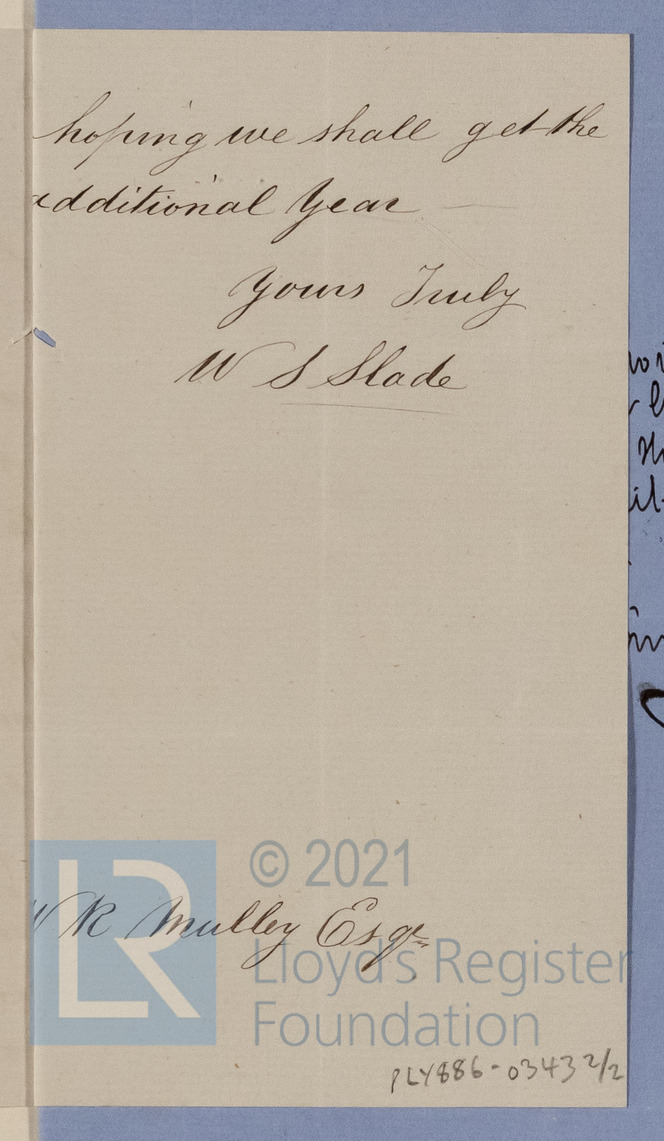 hoping we shall get the
additional Year
Yours Truly
W S Slade
© 2021
W R Mulley Esqre
LR
Lloyd's Register
Foundation
PLY886-0343 2/2